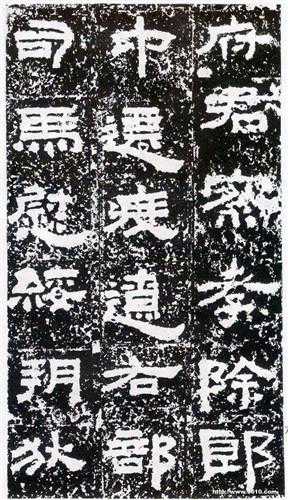 府君察孝除郎
中遷度遼右部
司馬慰綏朔狄
http://www.9610.com